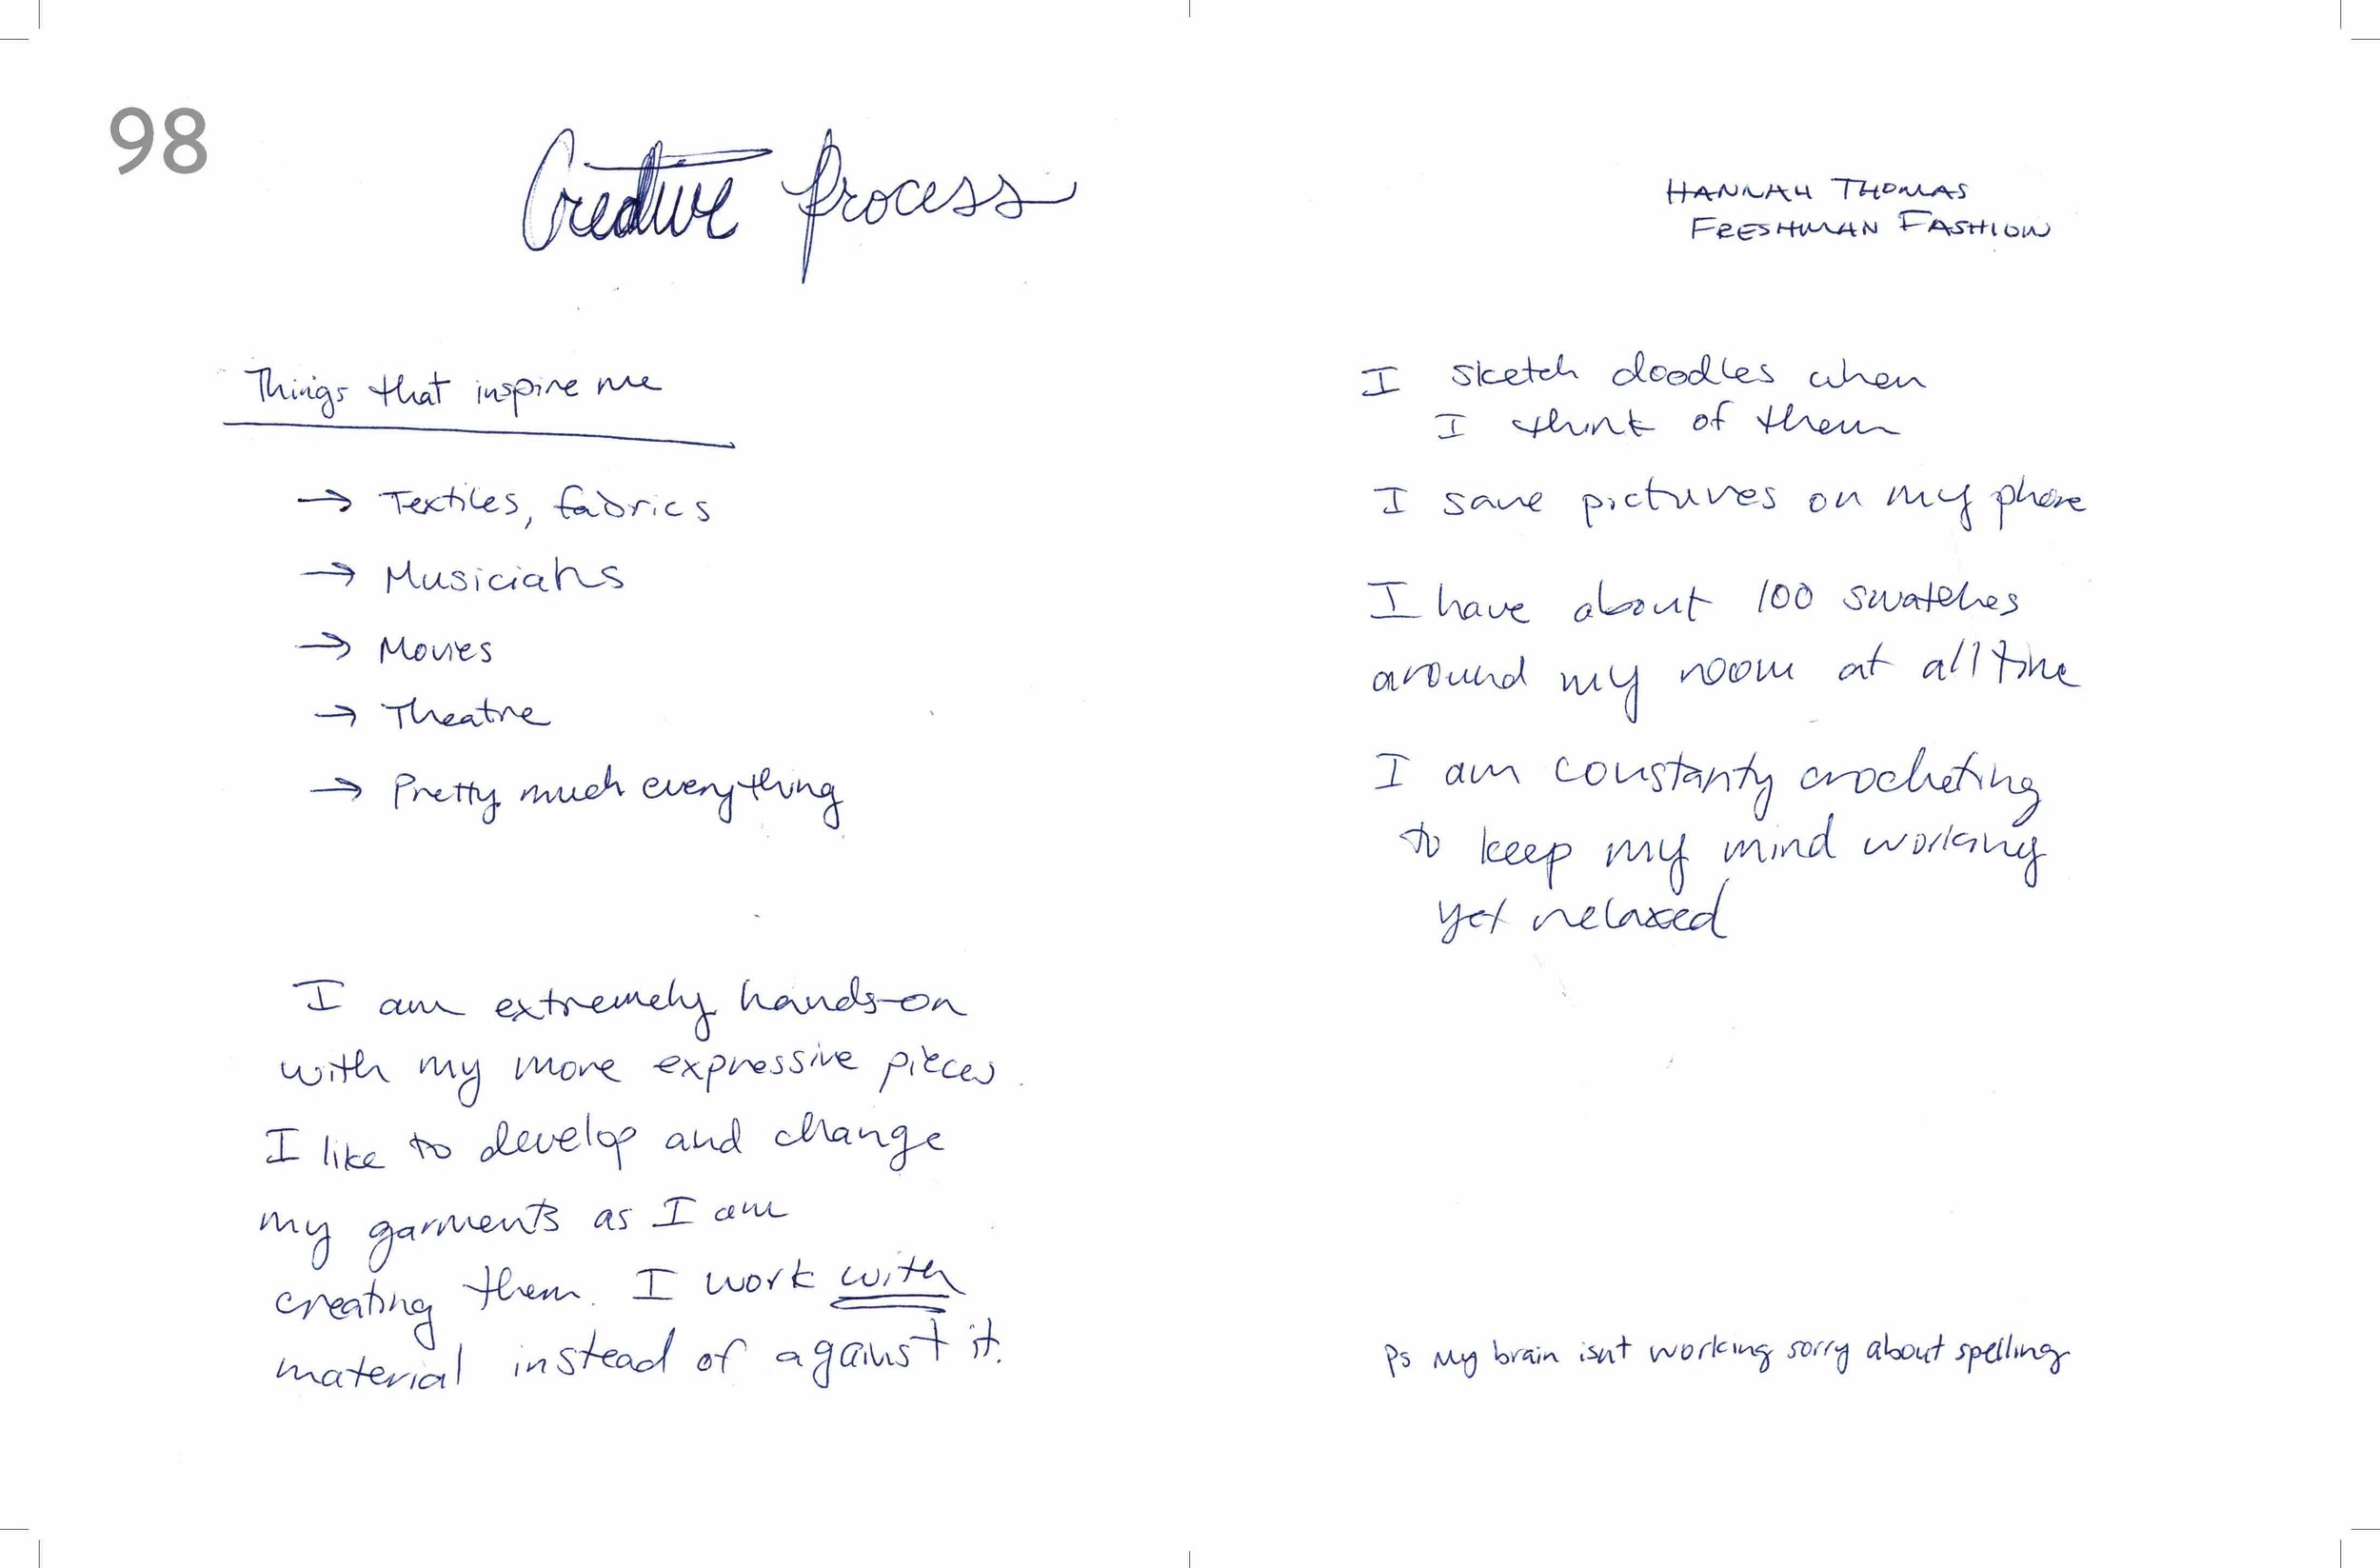 98
Creative Process
Things that inspire me
→ Textiles, fabrics
→ Musicians
→ Movies
→ Theatre
→ Pretty much everything
I am extremely hands-on
with my more expressive pieces.
I like to develop and change
my garments as I am
creating them. I work with
material instead of against it.
HANNAH THOMAS
FRESHMAN FASHION
I sketch doodles when
I think of them
I save pictures on my phone
I have about 100 swatches
around my room at all time
I am constanty crocheting
to keep my mind working
yet relaxed
Ps My brain isnt working sorry about spelling